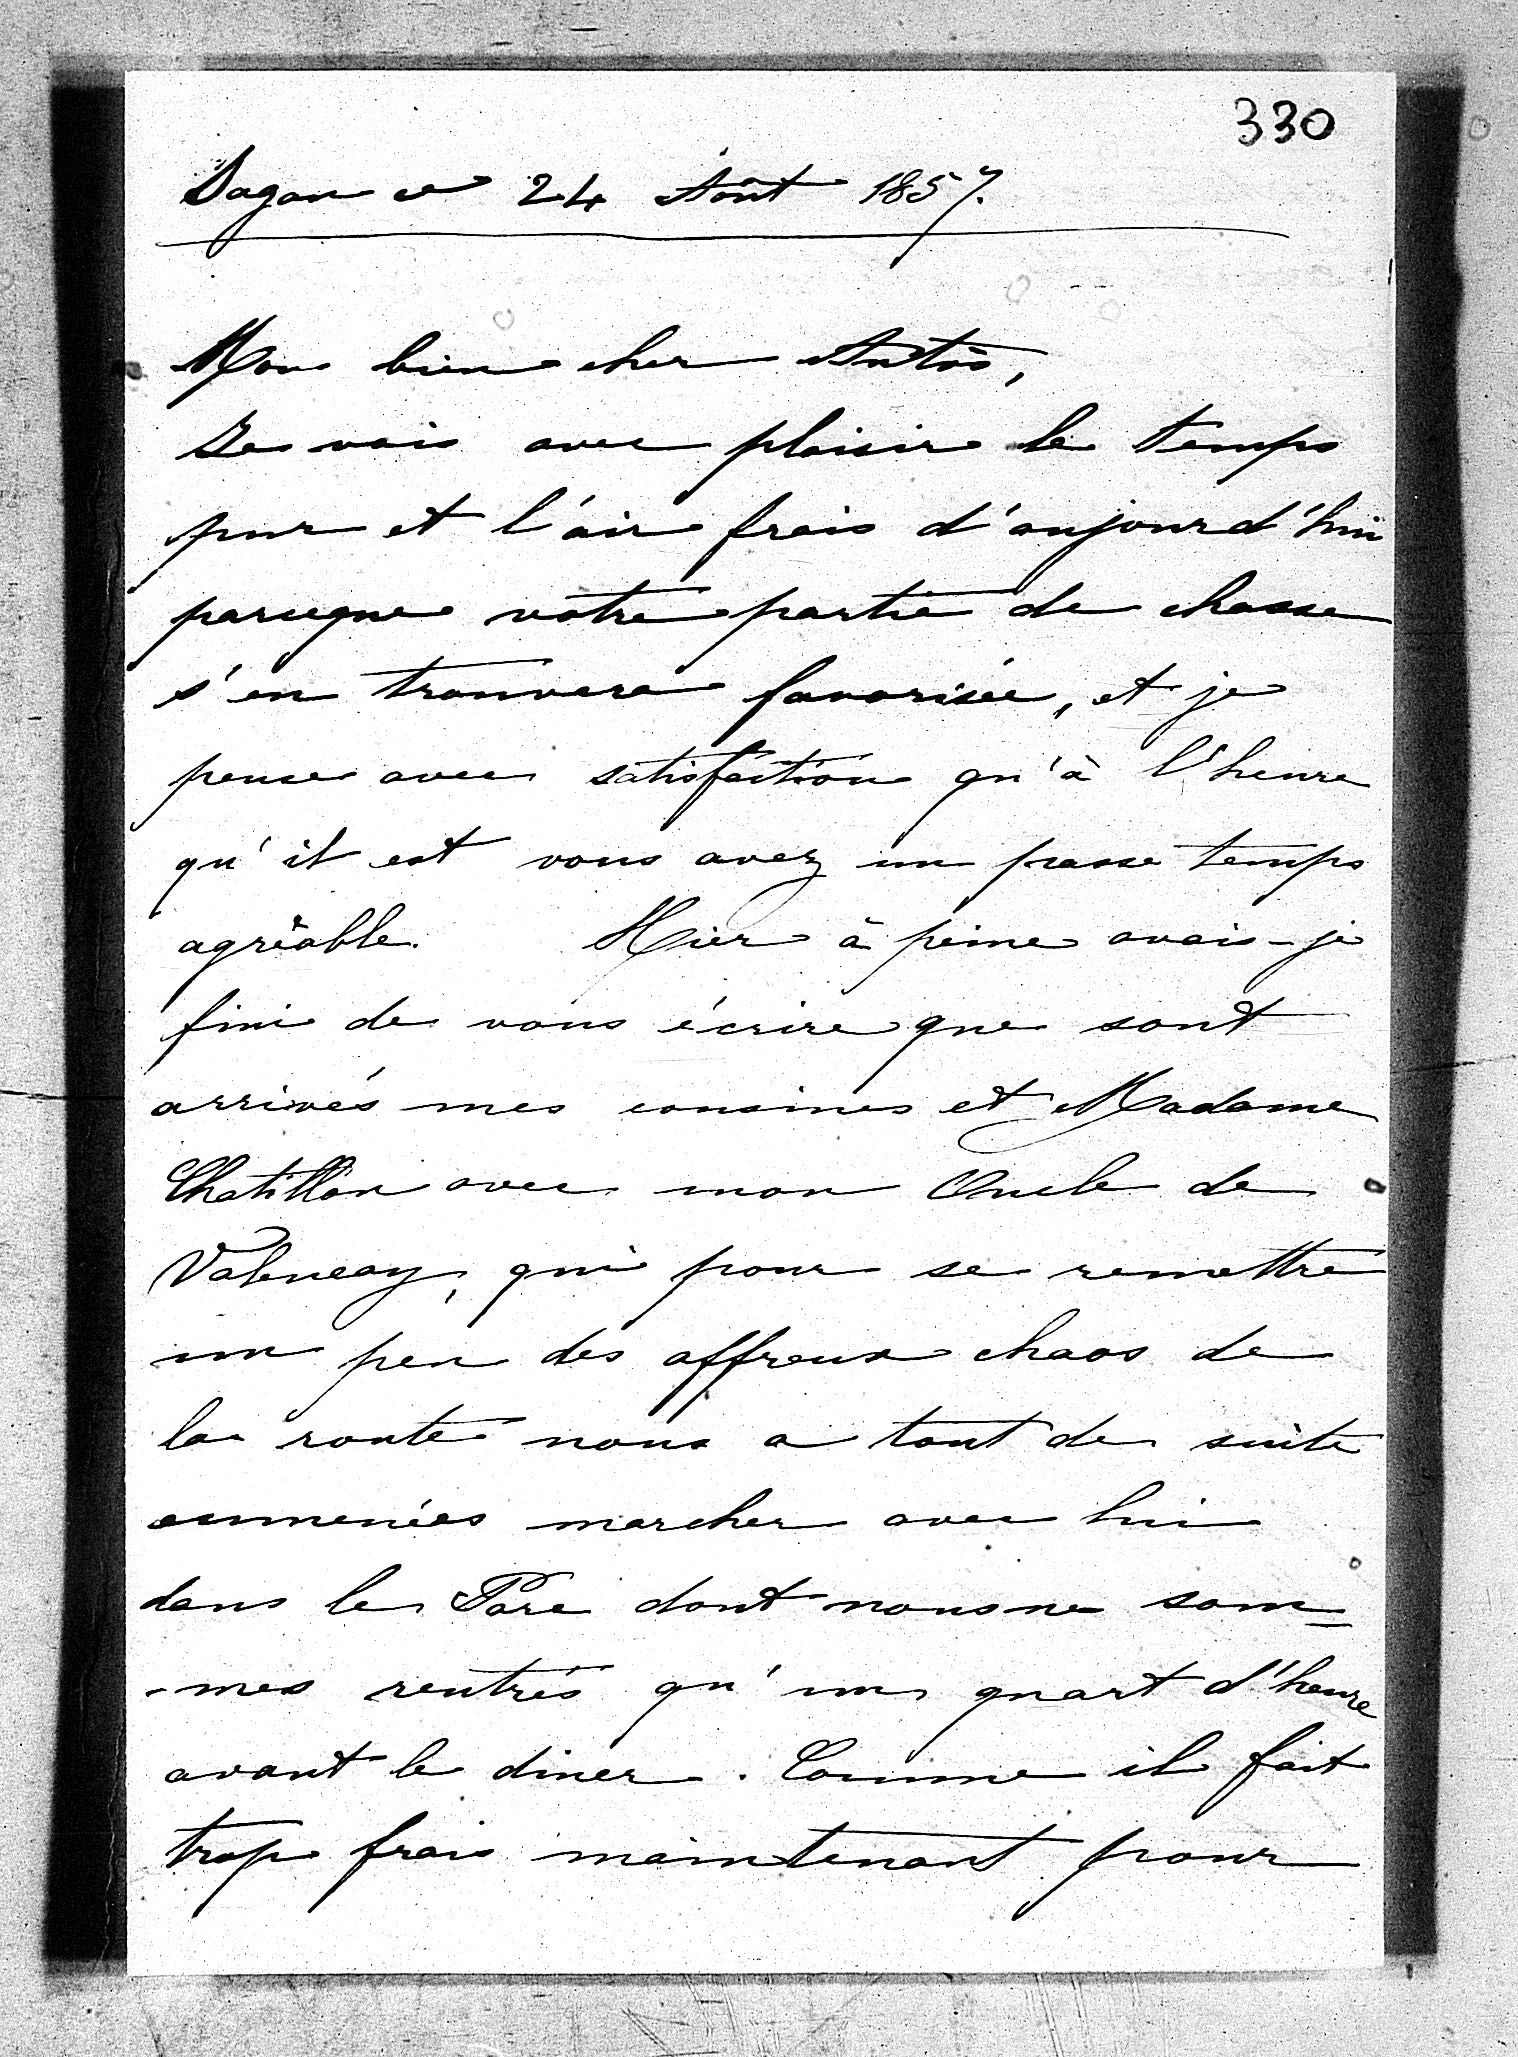 330
Sagan ce 24 Août 1857.
Mon bien cher Antós,
Je vois avec plaisir le temps
pur et l'air frais d'aujourd'hui
parceque votre partie de chasse
s'en trouvera favorisée, et je
pense avec satisfaction qu'à l'heure
qu'il est vous avez un passe temps
agréable. Hier à peine avais-je
fini de vous écrire que sont
arrivés mes cousines et Madame
Chatillon avec mon Oncle de
Valencay, qui pour se remettre
un peu des affreux chaos de
la route nous a tout de suite
emmenées marcher avec lui
dans le Parc dont nous ne som=
-mes rentrés qu'un quart d'heure
avant le diner. Comme il fait
trop frais maintenant pour